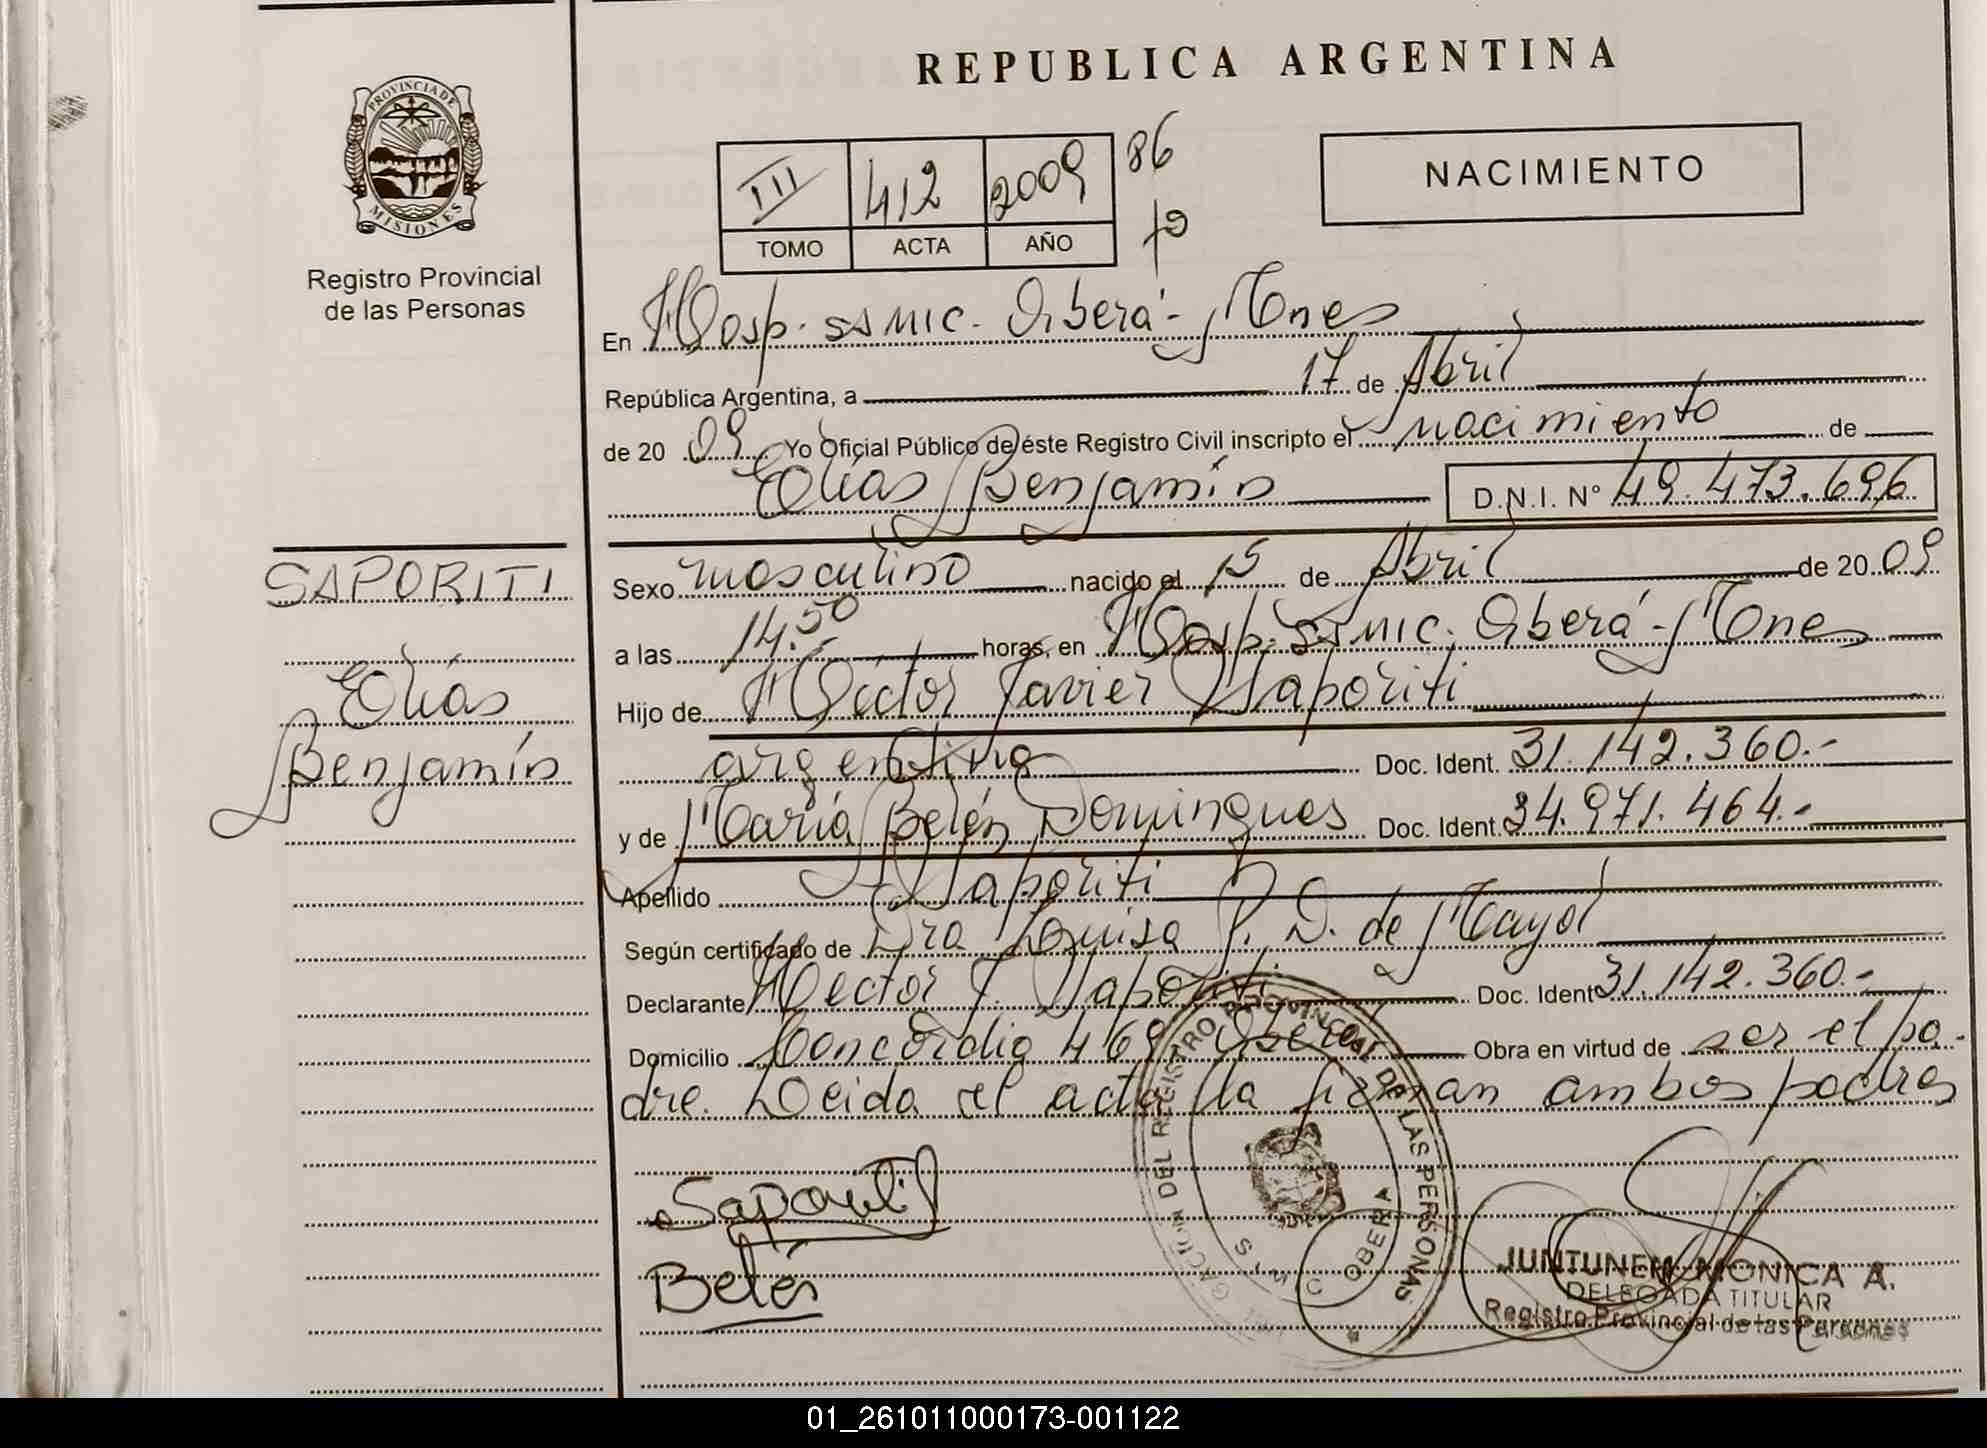 REPUBLICA ARGENTINA
PROVINCIA DE
MISIONES
Registro Provincial
de las Personas
III 412 2009 86
TOMO ACTA AÑO
NACIMIENTO
En Hosp. SAMIC. Oberá - Mnes
República Argentina, a 17 de Abril
de 20 09 Yo Oficial Público de éste Registro Civil inscripto el nacimiento de
Elías Benjamín D.N.I. Nº 49.473.696
SAPORITI
Elías
Benjamín
Sexo masculino nacido el 15 de Abril de 20 09
a las 14.50 horas, en Hosp. SAMIC. Oberá - Mnes
Hijo de Héctor Javier Saporiti
argentino Doc. Ident. 31.142.360.-
y de María Belén Domingues Doc. Ident. 34.971.464.-
Apellido Saporiti
Según certificado de Dra Louisa P. D. de Mayol
Declarante Hector J. Saporiti Doc. Ident 31.142.360.-
Domicilio Concordia 469 Oberá Obra en virtud de ser el pa-
dre. Leida el acta la firman ambos padres
Saporiti
Belén
DEL REGISTRO PROVINCIAL DE LAS PERSONAS
OBERA
JUNTUNEN MONICA A.
DELEGADA TITULAR
Registro Provincial de las Personas
01_261011000173-001122